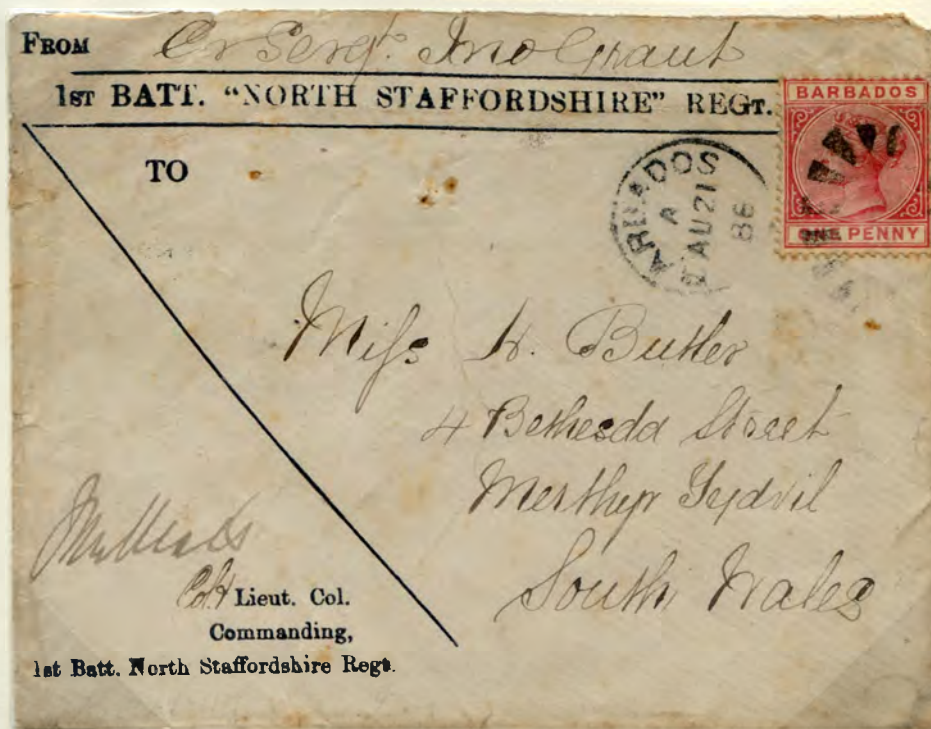 FROM Cr Sergt. Jno Grant
1ST BATT. "NORTH STAFFORDSHIRE" REGT.
BARBADOS
TO
ONE PENNY
BARBADOS
A
AU 21
86
Miss H. Butler
4 Bethesda Street
Merthyr Tydvil
South Wales
Lieut. Col.
Commanding,
1st Batt. North Staffordshire Regt.